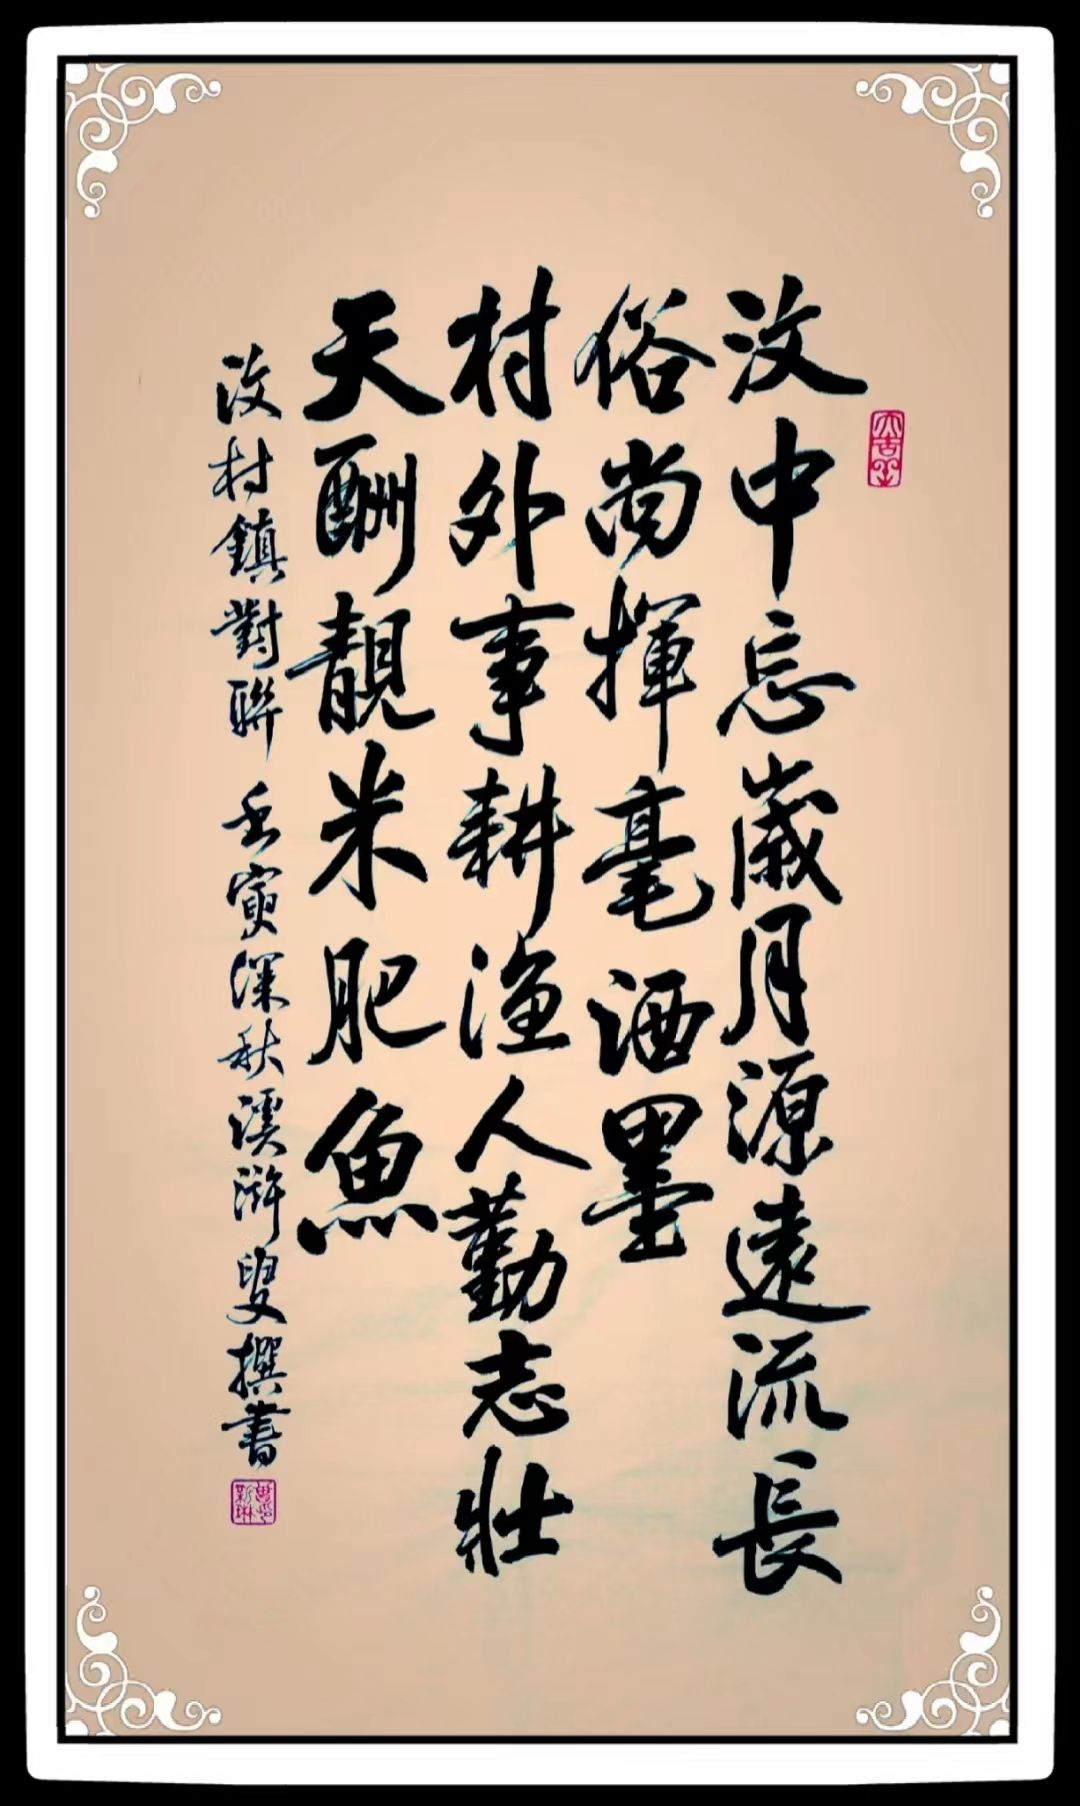 汶中忘歲月源遠流長
俗尚揮毫洒墨
村外事耕漁人勤志壯
天酬靚米肥魚
汶村鎮對聯 壬寅深秋溪滸叟撰書
大吉羊